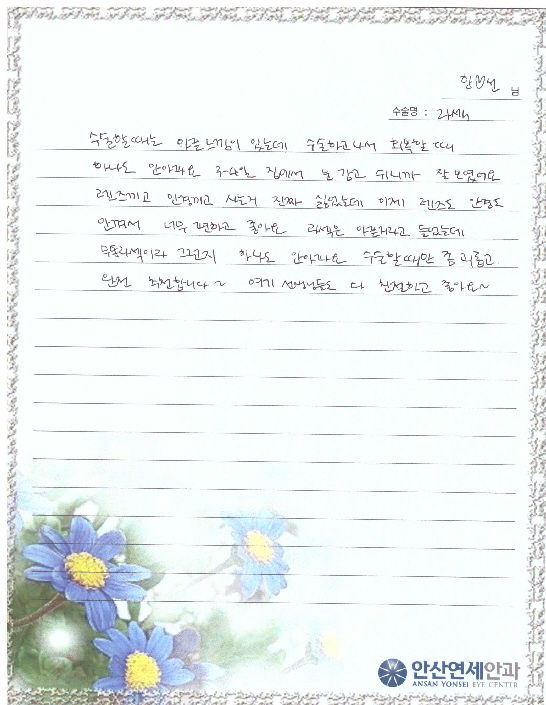 한♡선 님
수술명 : 라섹
수술할때는 아픈느낌이 있는데 수술하고나서 회복할 때
하나도 안아파요 3-4일 집에서 눈 감고 쉬니까 잘 보였어요
렌즈끼고 안경끼고 사는거 진짜 싫었는데 이제 렌즈도 안경도
안껴서 너무 편하고 좋아요 라섹은 아플거라고 들었는데
무통라섹이라 그런지 하나도 안아파요 수술할때만 좀 괴롭고
완전 추천합니다~ 여기 선생님들도 다 친절하고 좋아요~
안산연세안과
ANSAN YONSEI EYE CENTER